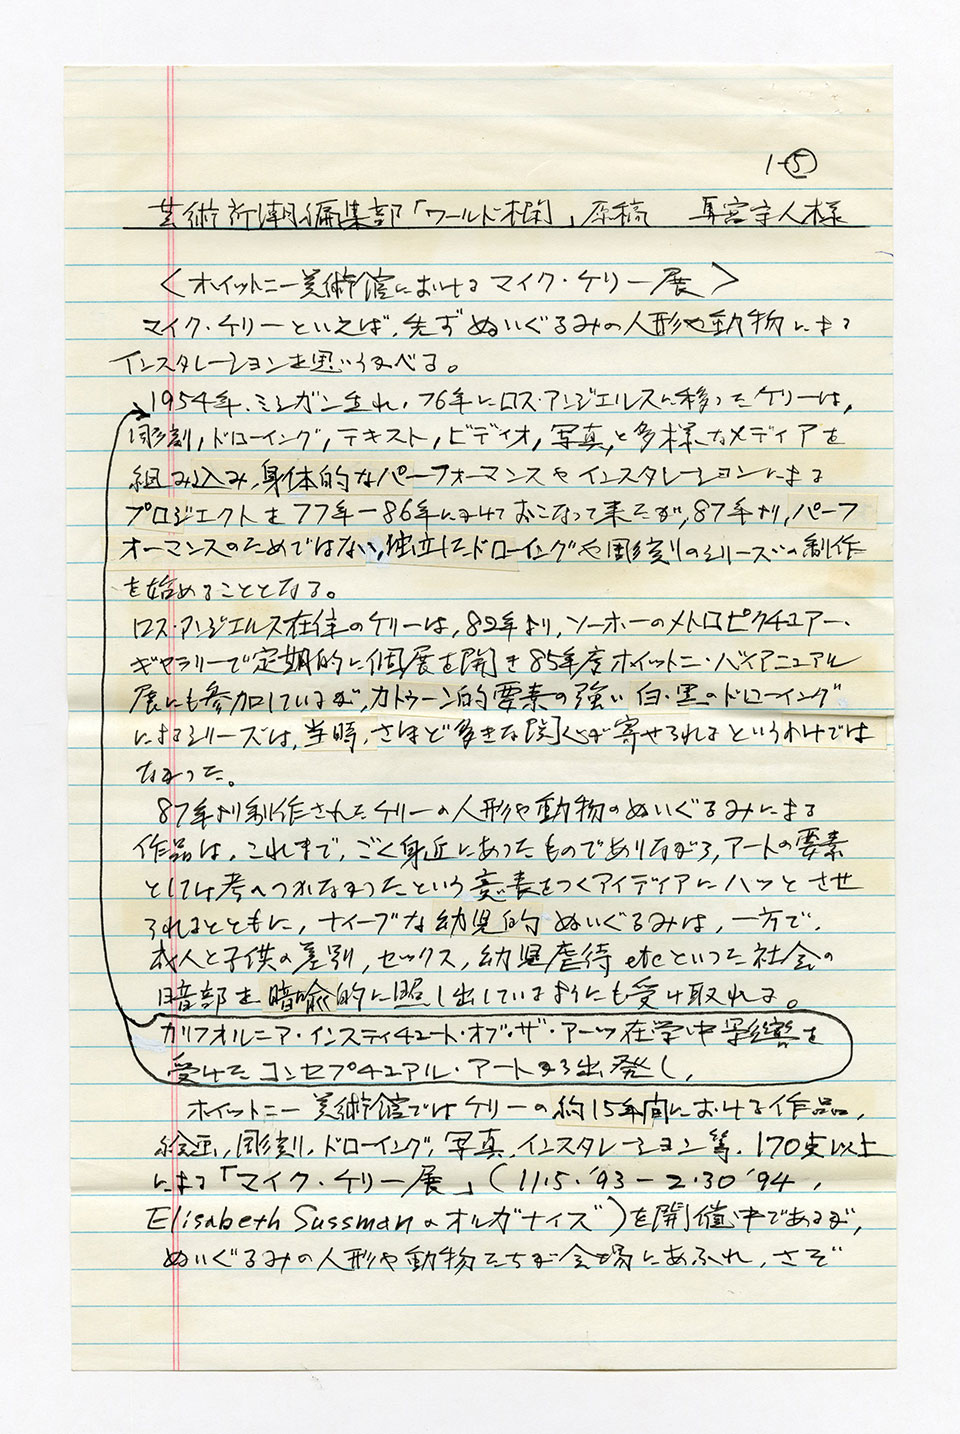 1-⑤
芸術新潮編集部「ワールド欄」原稿
〈ホイットニー美術館における マイク・ケリー展〉
マイク・ケリーといえば、先ずぬいぐるみの人形や動物による
インスタレーションを思いうかべる。
1954年、ミシガン生れ、76年にロス・アンジェルスに移ったケリーは、
彫刻、ドローイング、テキスト、ビディオ、写真、と多様なメディアを
組み込み、身体的なパーフォーマンスやインスタレーションによる
プロジェクトを77年ー86年にかけておこなって来たが、87年より、パーフ
オーマンスのためではない、独立したドローイングや彫刻のシリーズの制作
を始めることとなる。
ロス・アンジェルス在住のケリーは、82年より、ソーホーのメトロピクチュアー・
ギャラリーで定期的に個展を開き85年度ホイットニ・バイアニュアル
展にも参加しているが、カトゥーン的要素の強い白・黒のドローイング
によるシリーズは、当時、さほど多きな関心が寄せられるというわけでは
なかった。
87年より制作されたケリーの人形や動物のぬいぐるみによる
作品は、これまで、ごく身近にあったものでありながら、アートの要素
としては考へつかなかったという意表をつくアイディアにハッとさせ
られるとともに、ナイーブな幼児的ぬいぐるみは、一方で、
成人と子供の差別、セックス、幼児虐待etcといった社会の
暗部を暗喩的に照し出しているようにも受け取れる。
カリフォルニア・インスティチュート・オブ・ザ・アーツ在学中影響を
受けたコンセプチュアル・アートから出発し、
ホイットニー美術館ではケリーの約15年間における作品、
絵画、彫刻、ドローイング、写真、インスタレーション等、170点以上
による「マイク・ケリー展」(11.5.'93－2.30'94,
Elisabeth Sussmanのオルガナイズ)を開催中であるが、
ぬいぐるみの人形や動物たちが会場にあふれ、さぞ